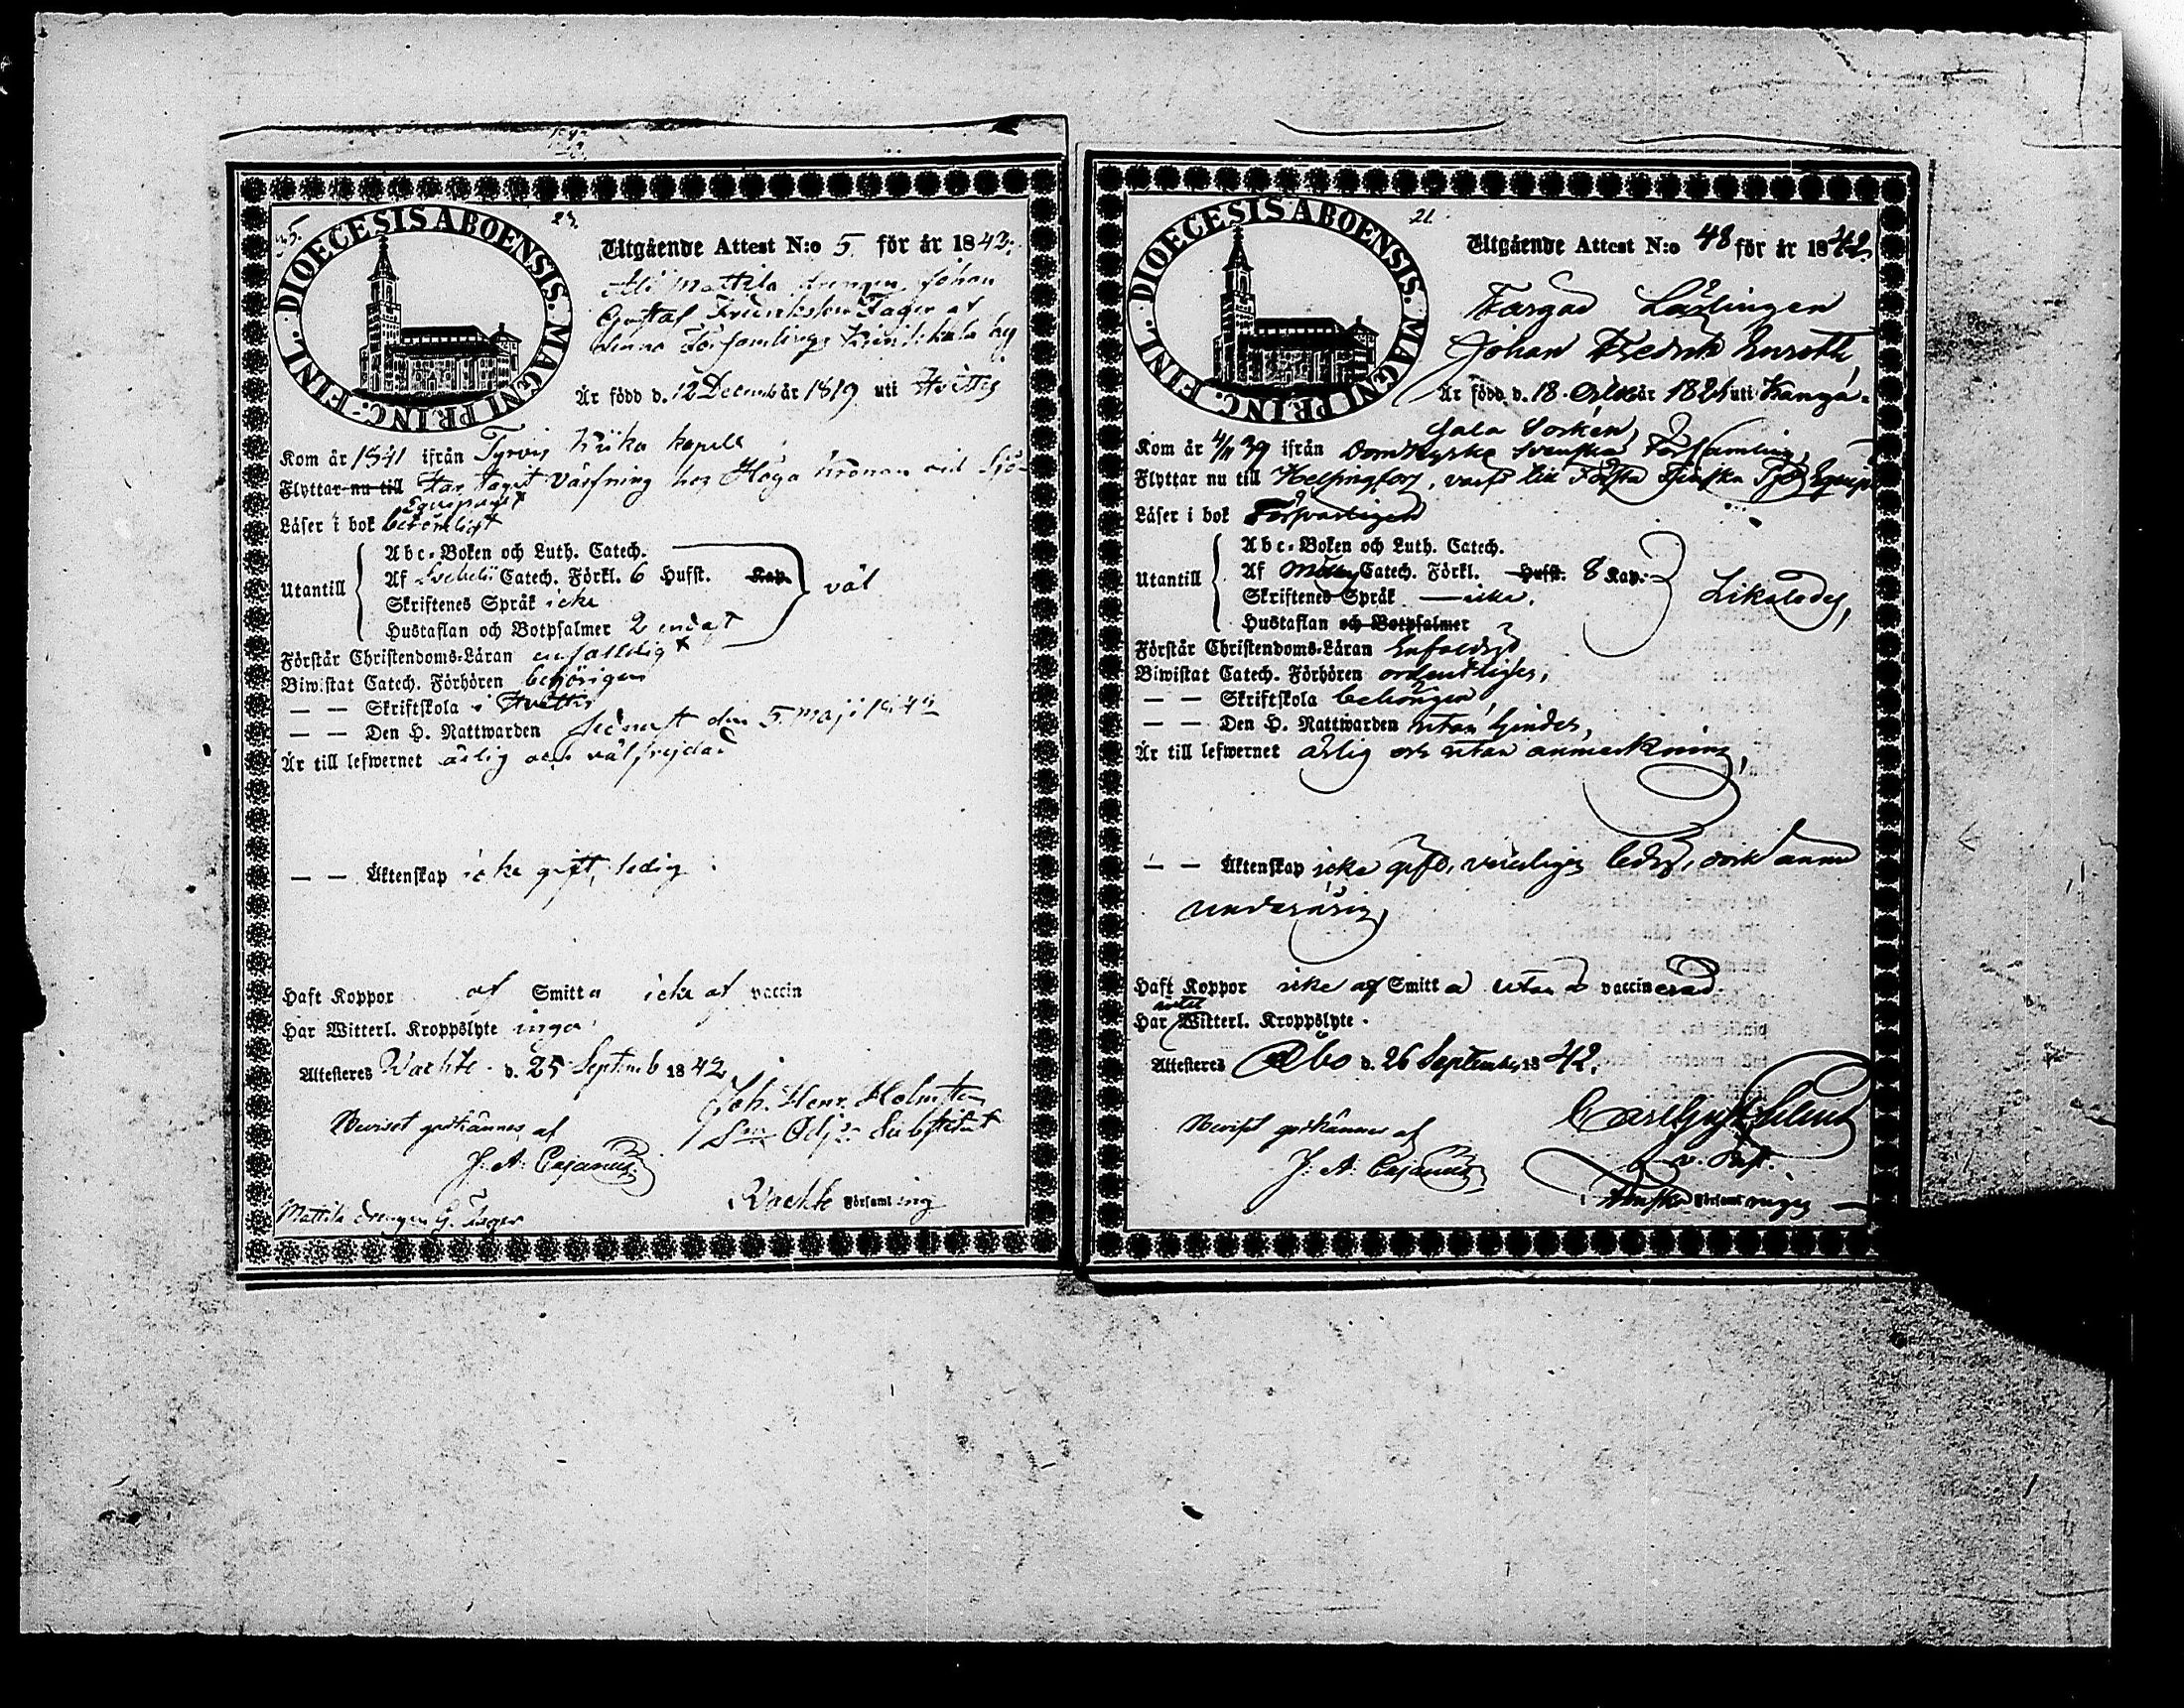 N:o 5.
23.
DIOECESIS ABOENSIS. MAGNI PRINC. FINL.
Utgående Attest N:o 5 för år 1842.
Mattila drengen Johan
Gustaf Fredriksson Fager af
denna Församlings
Är född d. 12 Decemb år 1819 uti Hvittis
Kom år 1841 ifrån Tyrvis Kiika kapell
Flyttar nu till Har tagit värfning hos Höga Kronan vid Sjö-
Equipaget
Läser i bok berömligt
Utantill
Abc-Boken och Luth. Catech.
Af Svebelii Catech. Förkl. 6 Hufst. Kap.
Skriftenes Språk icke
Hustaflan och Botpsalmer 2 endast
väl
Förstår Christendoms-Läran enfaldigt
Biwistat Catech. Förhören behörigen
— — Skriftskola i Hvittis
— — Den H. Nattwarden sednast den 5 Maji 1842
Är till lefwernet ärlig och välfrejdad
— — Äktenskap icke gift, ledig
Haft Koppor af Smitta icke af vaccin
Har Witterl. Kroppslyte inga
Attesteras d. 25 Septemb 1842
Joh. Henr. Holmsten
Adj. Substitut
Beviset godkännes af
J. A. Cajanus
Församling
Mattila drengen G. Fager
21.
DIOECESIS ABOENSIS. MAGNI PRINC. FINL.
Utgående Attest N:o 48 för år 1842.
Färgare Lärlingen
Johan Fredrik Enroth,
Är född d. 18 år 1821 uti Kanga-
sala Socken,
Kom år 4/11 39 ifrån Domkyrko Svenska Församling,
Flyttar nu till Helsingfors, värfd till Första Finska Sjö Equip.
Läser i bok Försvarligen
Utantill
Abc-Boken och Luth. Catech.
Af Catech. Förkl. Hufst. 8 Kap.
Skriftenes Språk — icke.
Hustaflan och Botpsalmer
Likaledes,
Förstår Christendoms-Läran Enfaldigt
Biwistat Catech. Förhören ordentligen,
— — Skriftskola behörigen,
— — Den H. Nattwarden utan hinder,
Är till lefwernet ärlig och utan anmärkning,
— — Äktenskap icke gift, ledig, dock ännu
underårig,
Haft Koppor icke af Smitta utan vaccinerad.
intet
Har Witterl. Kroppslyte.
Attesteras Åbo d. 26 September 1842.
Beviset godkännes af
J. A. Cajanus
v. Past.
i Finska Församlingen